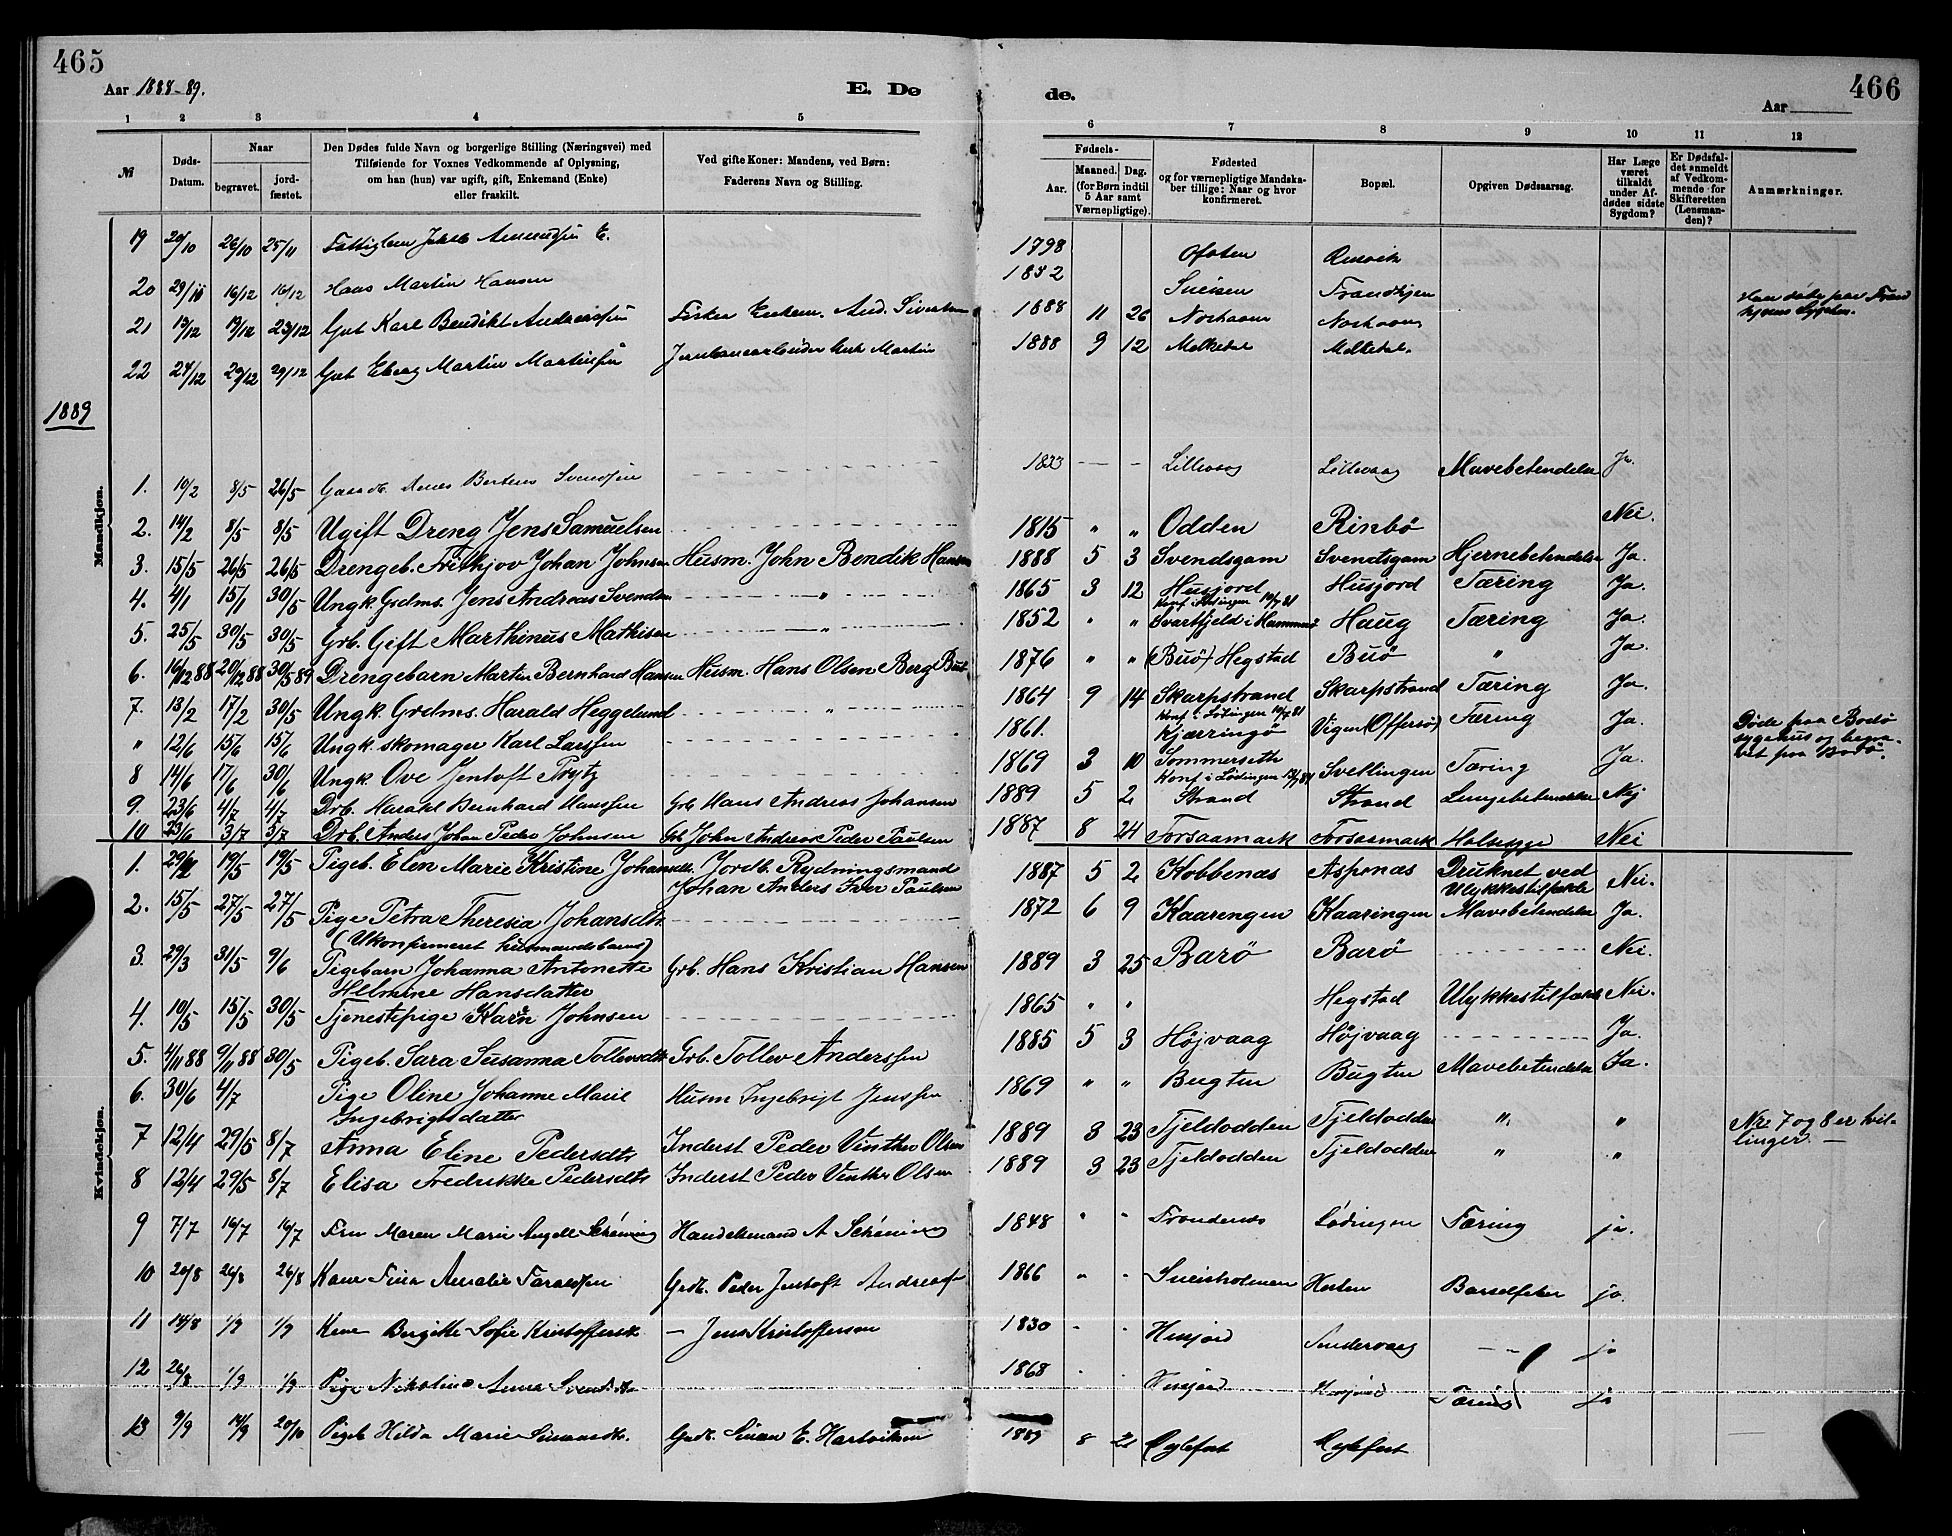 465
Aar 1888-89.
E. Dø
de.
466
Aar
1 2 3 4 5 6 7 8 9 10 11 12
№
Døds-Datum.
Naar
begravet.
jord-fæstet.
Den Dødes fulde Navn og borgerlige Stilling (Næringsvei) med
Tilføiende for Voxnes Vedkommende af Oplysning,
om han (hun) var ugift, gift, Enkemand (Enke)
eller fraskilt.
Ved gifte Koner: Mandens, ved Børn:
Faderens Navn og Stilling.
Fødsels-
Aar.
Maaned. Dag.
(for Børn indtil
5 Aar samt
Værnepligtige).
Fødested
og for værnepligtige Mandska-
ber tillige: Naar og hvor
konfirmeret.
Bopæl.
Opgiven Dødsaarsag.
Har Læge
været
tilkaldt
under Af-
dødes sidste
Sygdom?
Er Dødsfal-
det anmeldt
af Vedkom-
mende for
Skifteretten
(Lensman-
den)?
Anmærkninger.
19 20/10 26/10 25/11 1798 Ofoten
20 29/11 16/12 16/12 Hans Martin Hansen Trondhjem
21 19/12 23/12 Gut Karl Bendikt 1888 11 26
22 24/12 29/12 29/12 Gut Martin 1888 9 12 Melkedal Melkedal.
1889
Mandkjøn.
1. 10/2 8/5 26/5 Svendsen 1833 Lillevaag Lillevaag Mavebetendelse Ja.
2. 14/2 8/5 8/5 Ugift Dreng Jens Samuelsen 1815 " " Odden Rinbø Nei.
3. 15/5 26/5 26/5 Drengeb. Frithjov Johan Johnsen Husm. John Bendik Hansen 1888 5 3 Svendsgam Svendsgam Hjernebetendelse Ja.
4. 4/1 15/1 30/5 Ungk. Grdms. Jens Andreas Svendsen " 1865 3 12 Husjord Husjord Tæring Ja.
Konf. i Lødingen 10/7 81
5. 25/5 30/5 30/5 Grb. Gift Marthinus Mathisen " 1852 " " Svartfjeld i Hammerø Haug Tæring Ja.
6. 16/12 88 20/12 88 30/5 89 Drengebarn Martin Bernhard Hansen Husm. Hans Olsen Berg Buø 1876 " " (Buø) Hegstad Buø " Ja.
7. 13/2 17/2 30/5 Ungk. Grdms. Harald Heggelund " 1864 9 14 Skarpstrand Skarpstrand Tæring Ja.
Konf. i Lødingen 10/7 81
" 12/6 15/6 15/6 Ungk. skomager Karl Larssen 1861. Kjærringø Vigen (Offersø) Tæring Ja. Døde paa Bodø
sygehus og begra-
vet paa Bodø.
8 14/6 17/6 30/6 Ungk. Ove Jentoft Prytz 1869 3 10 Sommersette Svellingen Tæring Ja.
Konf. i Lødingen
9. 23/6 4/7 4/7 Drb. Harald Bernhard Hanssen Grb. Hans Andreas Johansen 1889 5 2 Strand Strand Lungebetendelse Nej
10 23/6 3/7 3/7 Drb. Anders Johan Peder Johnsen Grb. John Andreas Peder Paulsen 1887 8 24 Forsaamark Forsaamark Halssyge Nei
Kvindekjøn.
1. 19/5 19/5 Pigeb. Elen Marie Kristine Johansdt. Jordb. Rydningsmand
Johan Anders Paulsen 1887 5 2 Kobbenæs Aspenæs Druknet ved
Ulykkestilfælde Nei.
2. 15/5 27/5 27/5 Pige Petra Theresia Johansdt. 1872 6 9 Kaarengen Kaaringen Mavebetendelse Ja.
(Ukonfirmeret husmandsbarn)
3. 29/3 31/5 9/6 Pigebarn Johanna Antonette
Helmine Hansdatter Grb. Hans Kristian Hansen 1889 3 25 Barø Barø Nei.
4. 10/5 15/5 30/5 Tjenestepige Karn Johnsen 1865 " " Hegstad Ulykkestilfælde Nei.
5. 4/11 88 9/11 88 30/5 Pigeb. Sara Susanna Tollevsdt. Grb. Tollev Anderssen 1885 5 3 Højvaag Højvaag Ja.
6. 30/6 4/7 Pige Oline Johanne Marie
Ingebrigtsdatter Husm Ingebrigt Jenssen 1869 " " Bugten Bugten Mavebetendelse Ja.
7 12/4 29/5 8/7 Anna Eline Pedersdt. Inderst Peder Vinther Olsen 1889 3 23 Tjeldodden Tjeldodden " " Nr. 7 og 8 er tvil-
linger. —
8 12/4 29/5 8/7 Elisa Fredrikke Pedersdt. Inderst Peder Vinther Olsen 1889 3 23 Tjeldodden Tjeldodden " "
9 7/7 16/7 16/7 Fru Maren Marie Angell Schøning Handelsmand A Schøning 1848 " " Trondenes Lødingen Tæring ja.
10 20/8 26/8 26/8 Kone Amalie Grdb. Peder Jentoft 1866 " " Sneisholmen Barselfeber ja.
11 14/8 1/9 1/9 Kone Birgitte Sofie Kristoffersdt. — Jens Kristoffersen 1830 Husjord ja
12 26/8 1/9 1/9 Pige Nikoline Anna 1868 Husjord Husjord Tæring ja
13 9/9 14/9 20/10 Pigeb Hilda Marie Grdb. E. Hartviksen 1889 8